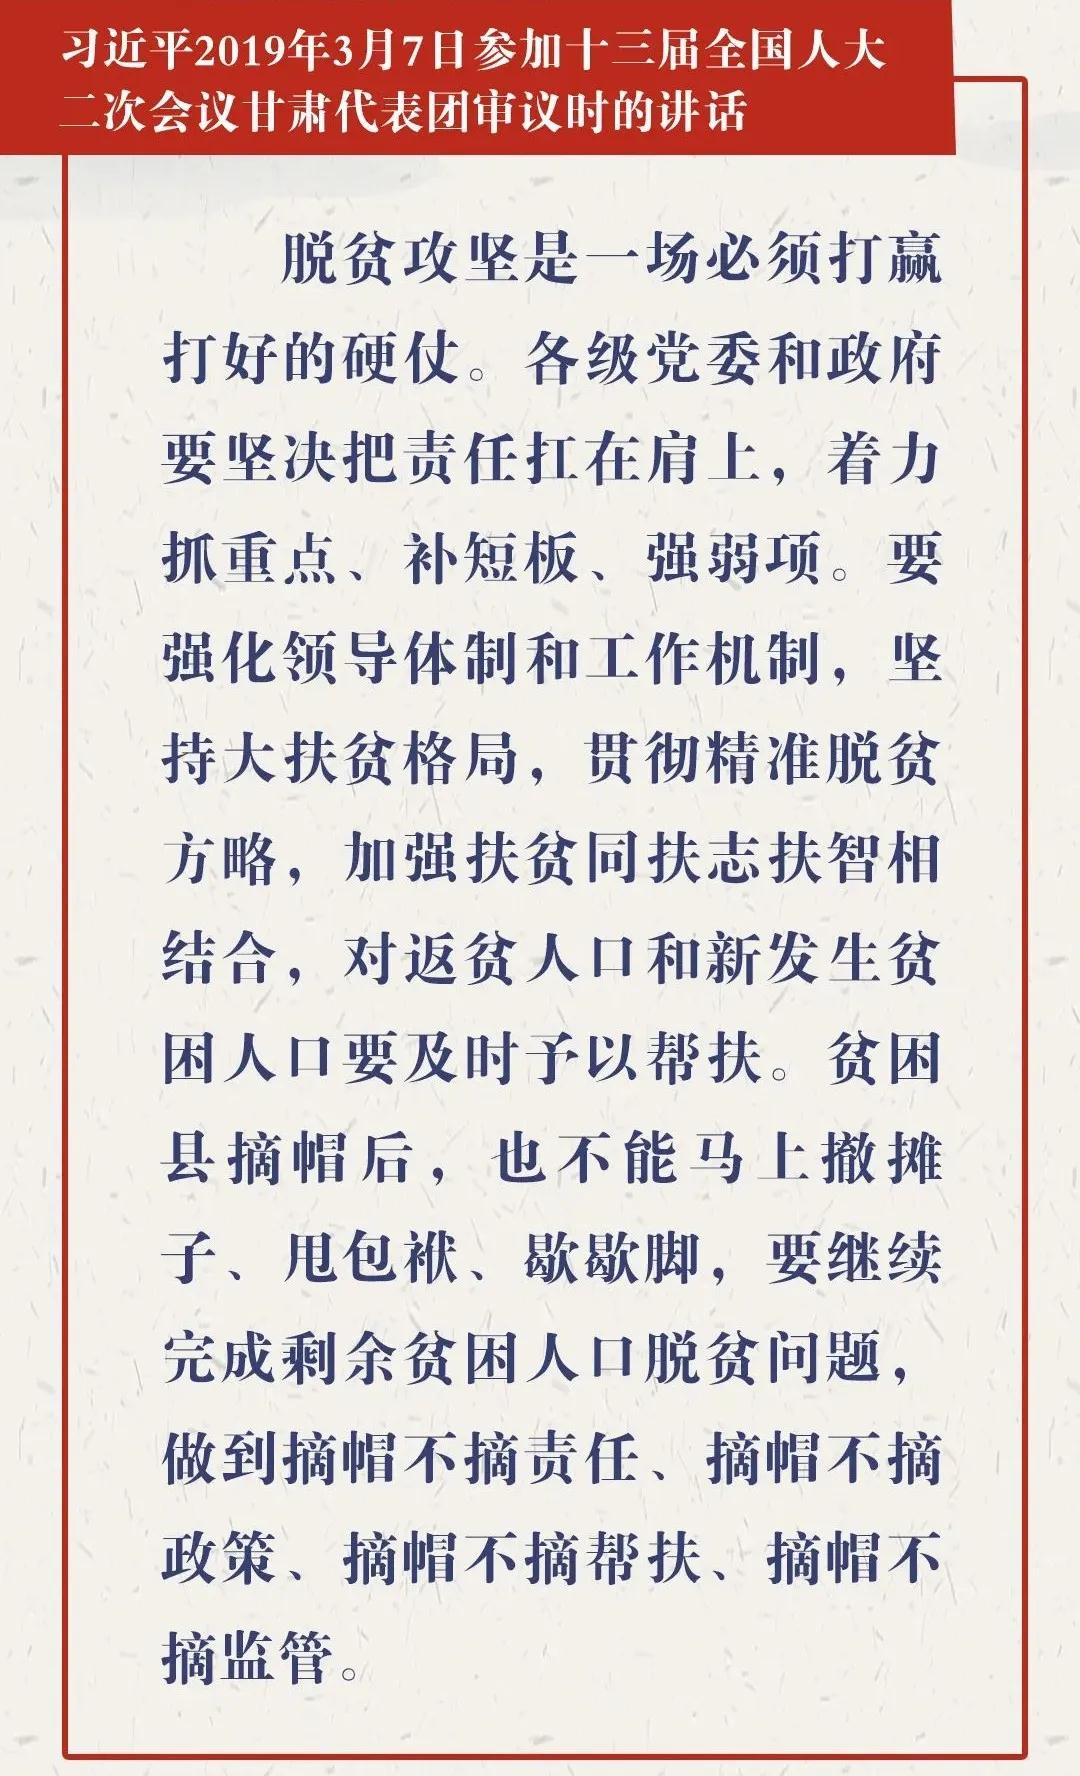 习近平2019年3月7日参加十三届全国人大
二次会议甘肃代表团审议时的讲话
脱贫攻坚是一场必须打赢
打好的硬仗。各级党委和政府
要坚决把责任扛在肩上，着力
抓重点、补短板、强弱项。要
强化领导体制和工作机制，坚
持大扶贫格局，贯彻精准脱贫
方略，加强扶贫同扶志扶智相
结合，对返贫人口和新发生贫
困人口要及时予以帮扶。贫困
县摘帽后，也不能马上撤摊
子、甩包袱、歇歇脚，要继续
完成剩余贫困人口脱贫问题，
做到摘帽不摘责任、摘帽不摘
政策、摘帽不摘帮扶、摘帽不
摘监管。